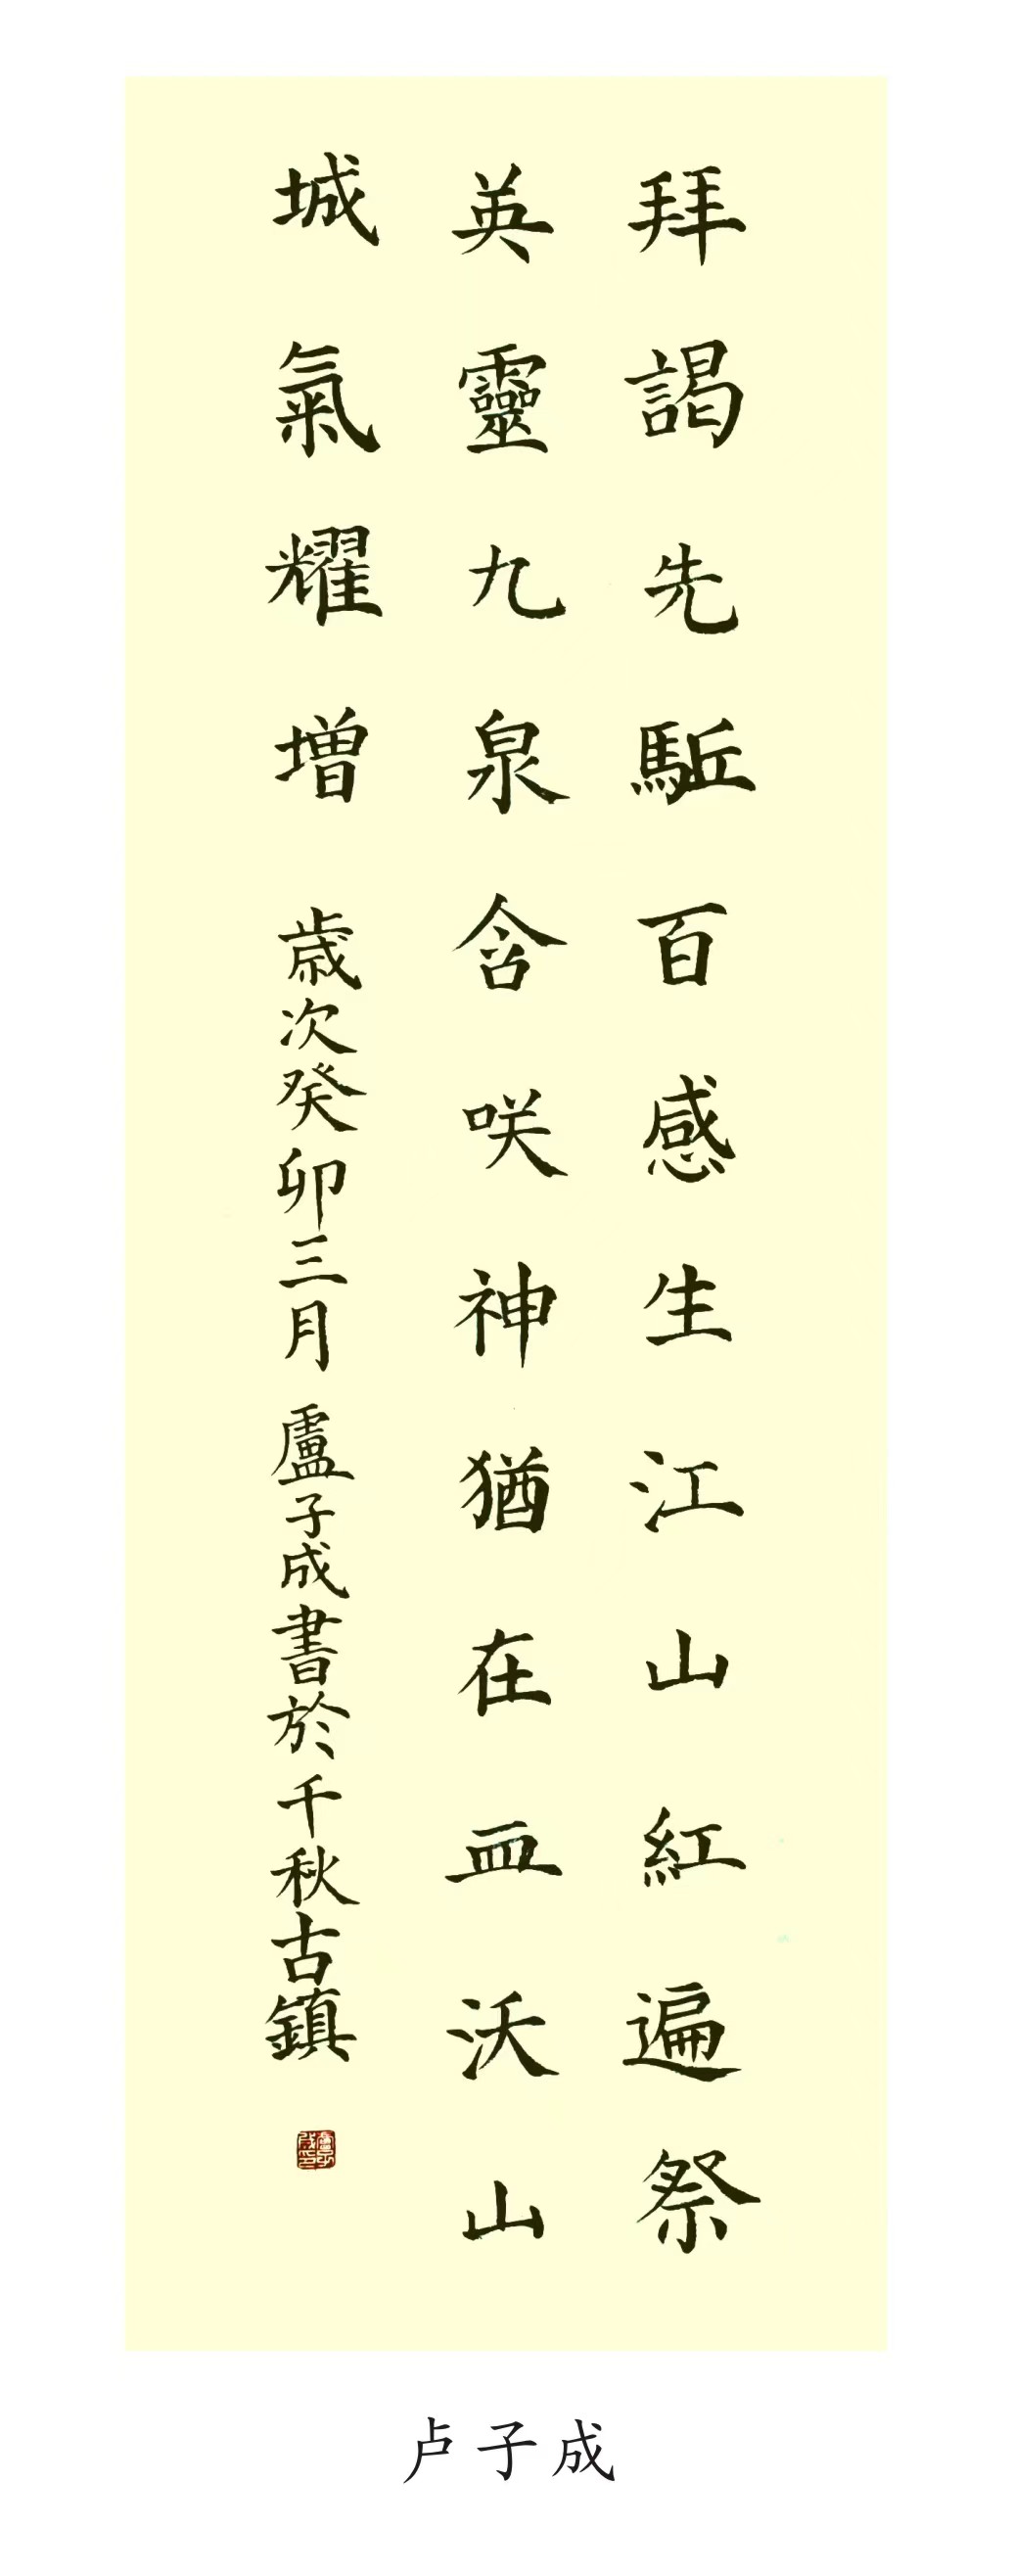 拜謁先駈百感生江山紅遍祭
英靈九泉含咲神猶在血沃山
城氣耀增 歲次癸卯三月 盧子成書於千秋古鎮
卢子成